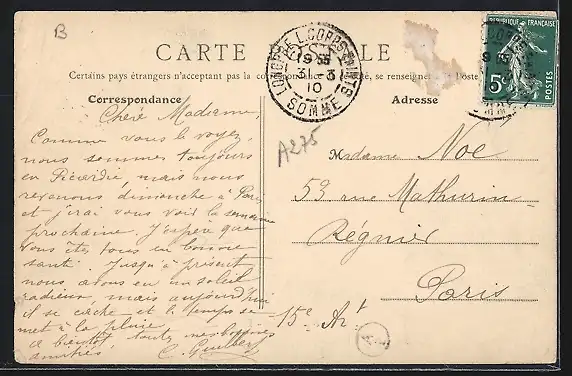 B
CARTE POSTALE
Certains pays étrangers n'acceptent pas la correspondance, se renseigner à la Poste
Correspondance
Adresse
LONGPRE L. CORPS SAINTS
19 35
31 - 3
10
SOMME
REPUBLIQUE FRANÇAISE
5c
POSTES
A275
Chère Madame,
Comme vous le voyez,
nous sommes toujours
en Picardie, mais nous
revenons dimanche à Paris
et j'irai vous voir la semaine
prochaine. J'espère que
vous êtes tous en bonne
santé. Jusqu'à présent
nous avons eu un soleil
radieux, mais aujourd'hui
il se cache et le temps se
met à la pluie.
à bientôt, toutes mes bonnes
amitiés. C. Guilbert
Madame Noe
59 rue Mathurin-
Régnier
Paris
15e Art